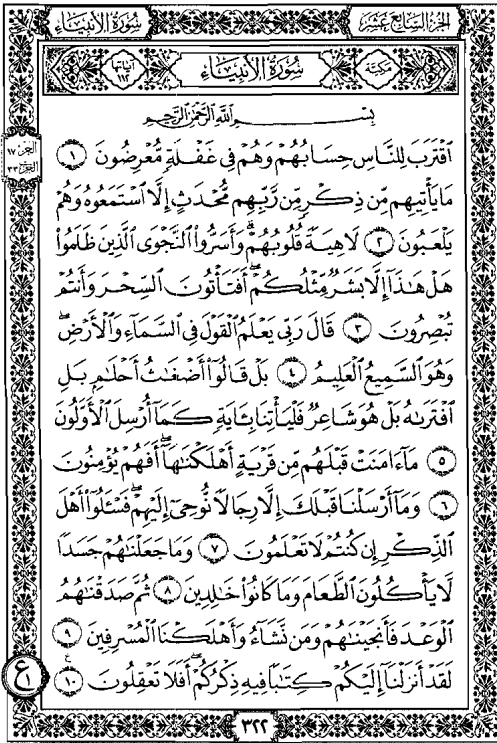 سُورَةُ الأَنبِيَاءِ
الجُزْءُ السَّابِعَ عَشَرَ
آيَاتُهَا ١١٢
سُورَةُ الأَنبِيَاءِ
مَكِّيَّة
بِسْمِ اللَّهِ الرَّحْمَٰنِ الرَّحِيمِ
ٱقْتَرَبَ لِلنَّاسِ حِسَابُهُمْ وَهُمْ فِى غَفْلَةٍ مُّعْرِضُونَ ١
مَا يَأْتِيهِم مِّن ذِكْرٍ مِّن رَّبِّهِم مُّحْدَثٍ إِلَّا ٱسْتَمَعُوهُ وَهُمْ
يَلْعَبُونَ ٢ لَاهِيَةً قُلُوبُهُمْ ۗ وَأَسَرُّوا۟ ٱلنَّجْوَى ٱلَّذِينَ ظَلَمُوا۟
هَلْ هَٰذَآ إِلَّا بَشَرٌ مِّثْلُكُمْ ۖ أَفَتَأْتُونَ ٱلسِّحْرَ وَأَنتُمْ
تُبْصِرُونَ ٣ قَالَ رَبِّى يَعْلَمُ ٱلْقَوْلَ فِى ٱلسَّمَآءِ وَٱلْأَرْضِ ۖ
وَهُوَ ٱلسَّمِيعُ ٱلْعَلِيمُ ٤ بَلْ قَالُوٓا۟ أَضْغَٰثُ أَحْلَٰمٍۭ بَلِ
ٱفْتَرَىٰهُ بَلْ هُوَ شَاعِرٌ فَلْيَأْتِنَا بِـَٔايَةٍ كَمَآ أُرْسِلَ ٱلْأَوَّلُونَ
٥ مَآ ءَامَنَتْ قَبْلَهُم مِّن قَرْيَةٍ أَهْلَكْنَٰهَآ ۖ أَفَهُمْ يُؤْمِنُونَ
٦ وَمَآ أَرْسَلْنَا قَبْلَكَ إِلَّا رِجَالًا نُّوحِىٓ إِلَيْهِمْ ۖ فَسْـَٔلُوٓا۟ أَهْلَ
ٱلذِّكْرِ إِن كُنتُمْ لَا تَعْلَمُونَ ٧ وَمَا جَعَلْنَٰهُمْ جَسَدًا
لَّا يَأْكُلُونَ ٱلطَّعَامَ وَمَا كَانُوا۟ خَٰلِدِينَ ٨ ثُمَّ صَدَقْنَٰهُمُ
ٱلْوَعْدَ فَأَنجَيْنَٰهُمْ وَمَن نَّشَآءُ وَأَهْلَكْنَا ٱلْمُسْرِفِينَ ٩
لَقَدْ أَنزَلْنَآ إِلَيْكُمْ كِتَٰبًا فِيهِ ذِكْرُكُمْ ۖ أَفَلَا تَعْقِلُونَ ١٠
٣٢٢